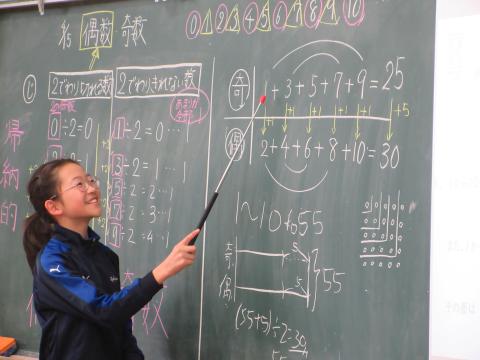 ① 2 ③ 4 ⑤ 6 ⑦ 8 ⑨ 10
偶数・奇数
2でわりきれる数
2でわりきれない数
あまりが
0÷2=0
1÷2=0…1
3÷2=1…1
5÷2=2…1
7÷2=3…1
9÷2=4…1
帰納的
奇 1+3+5+7+9=25
+1 +1 +1 +1 +1 +5
偶 2+4+6+8+10=30
1~10→55
奇 5
偶 5
55
(55+5)÷2=30
PUMA